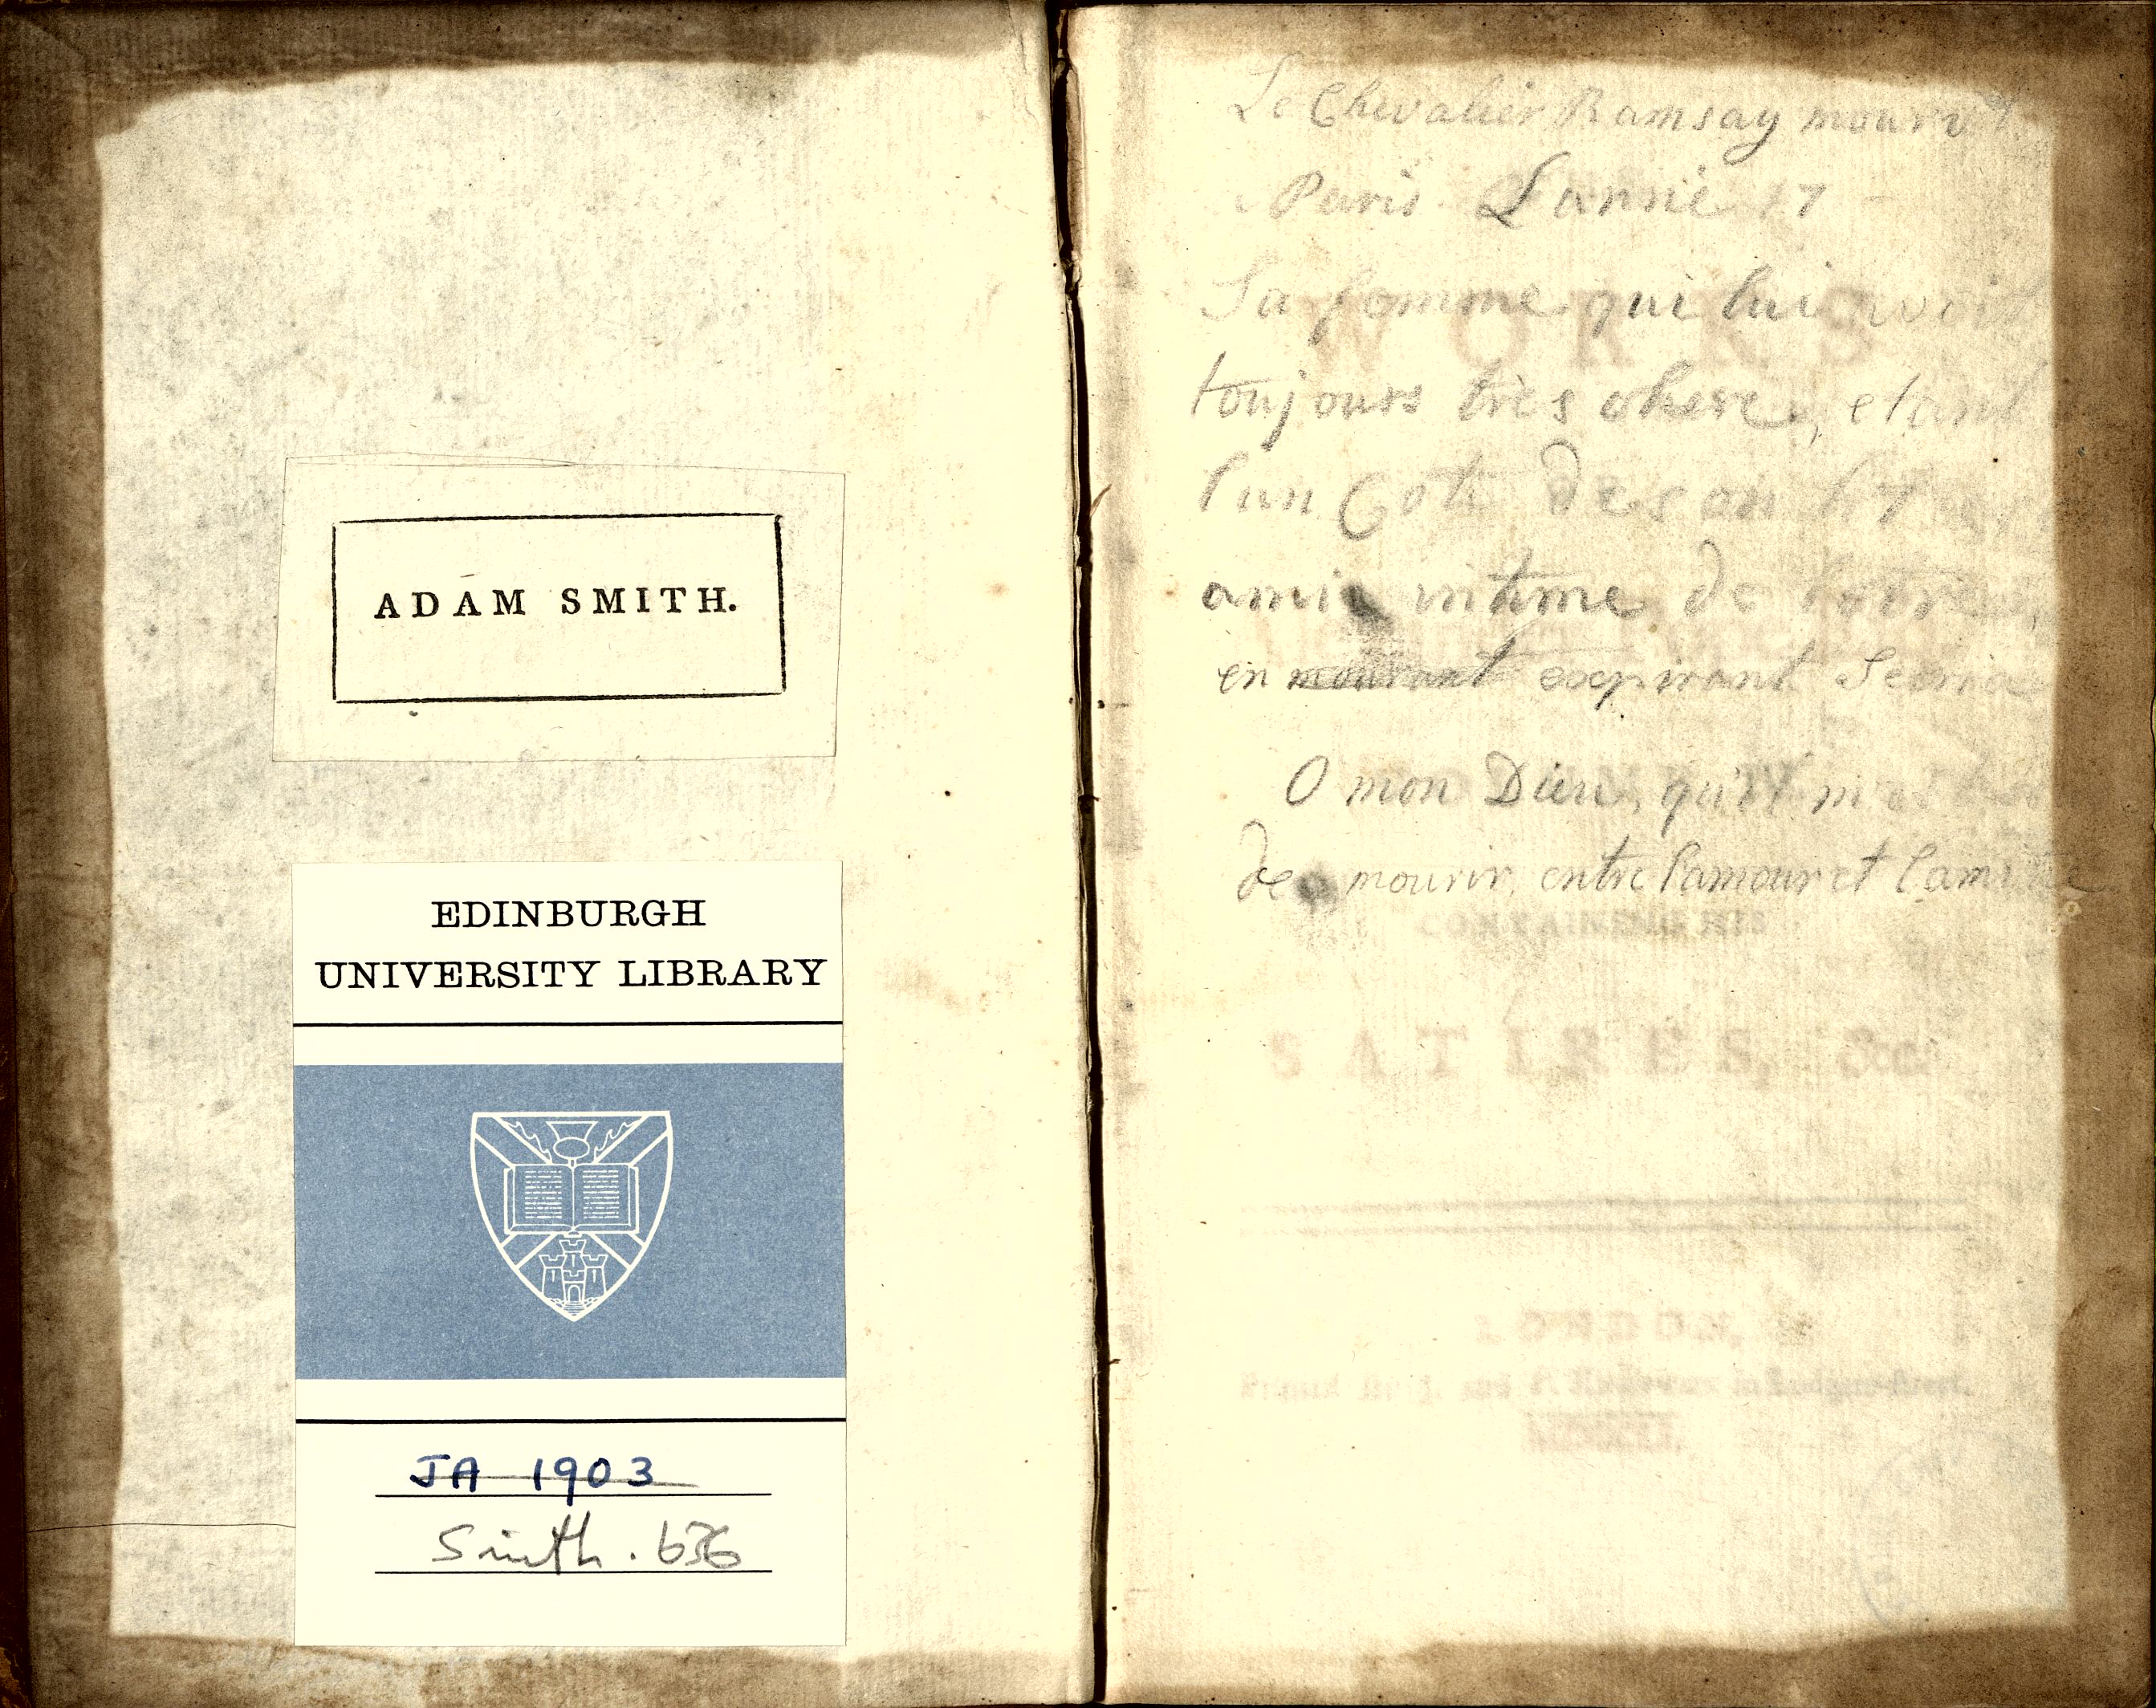 ADAM SMITH.
EDINBURGH
UNIVERSITY LIBRARY
JA 1903
Smith. 636
Le Chevalier Ramsay mourut
Paris L'annie 17
Sa femme qui lui avoit
toujours très chere, etant
l'un Coté de son lit
ami intime de l'autre
en mourant expirant Secria
O mon Dieu, qu'il
de mourir, entre l'amour et l'amitié
WORKS
CONTAINING HIS
SATIRES, &c.
LONDON,